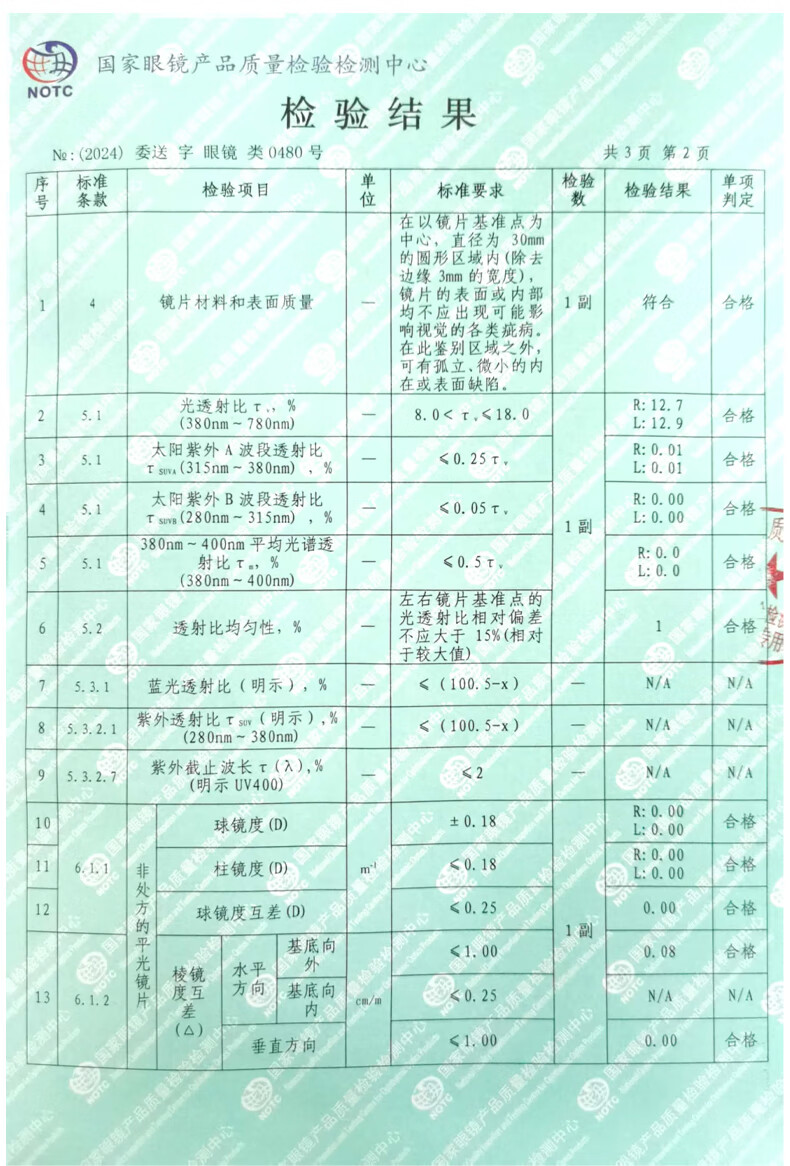 NOTC
国家眼镜产品质量检验检测中心
检验结果
№:(2024) 委送 字 眼镜 类0480号
共3页 第2页
序号 标准条款 检验项目 单位 标准要求 检验数 检验结果 单项判定
1 4 镜片材料和表面质量 — 在以镜片基准点为
中心，直径为 30mm
的圆形区域内(除去
边缘3mm的宽度)，
镜片的表面或内部
均不应出现可能影
响视觉的各类疵病。
在此鉴别区域之外，
可有孤立、微小的内
在或表面缺陷。
1副 符合 合格
2 5.1 光透射比τv，%
(380nm~780nm)
— 8.0<τv≤18.0 R:12.7
L:12.9
合格
3 5.1 太阳紫外A波段透射比
τSUVA(315nm~380nm) ，%
— ≤0.25τv R:0.01
L:0.01
合格
4 5.1 太阳紫外B波段透射比
τSUVB(280nm~315nm) ，%
— ≤0.05τv 1副 R:0.00
L:0.00
合格
5 5.1 380nm~400nm平均光谱透
射比τ，%
(380nm~400nm)
— ≤0.5τv R:0.0
L:0.0
合格
6 5.2 透射比均匀性，% — 左右镜片基准点的
光透射比相对偏差
不应大于 15%(相对
于较大值)
1 合格
7 5.3.1 蓝光透射比(明示)，% — ≤(100.5-x) — N/A N/A
8 5.3.2.1 紫外透射比τSUV(明示)，%
(280nm~380nm)
— ≤(100.5-x) — N/A N/A
9 5.3.2.7 紫外截止波长τ(λ)，%
(明示UV400)
— ≤2 — N/A N/A
10 6.1.1 非处方的平光镜片 球镜度(D) m⁻¹ ±0.18 1副 R:0.00
L:0.00
合格
11 柱镜度(D) ≤0.18 R:0.00
L:0.00
合格
12 球镜度互差(D) ≤0.25 0.00 合格
13 6.1.2 棱镜度互差(△) 水平方向 基底向外 cm/m ≤1.00 0.08 合格
基底向内 ≤0.25 N/A N/A
垂直方向 ≤1.00 0.00 合格